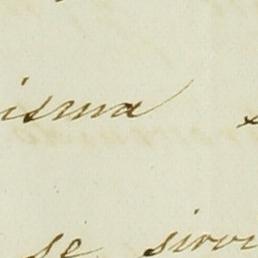 isma
se sirvi